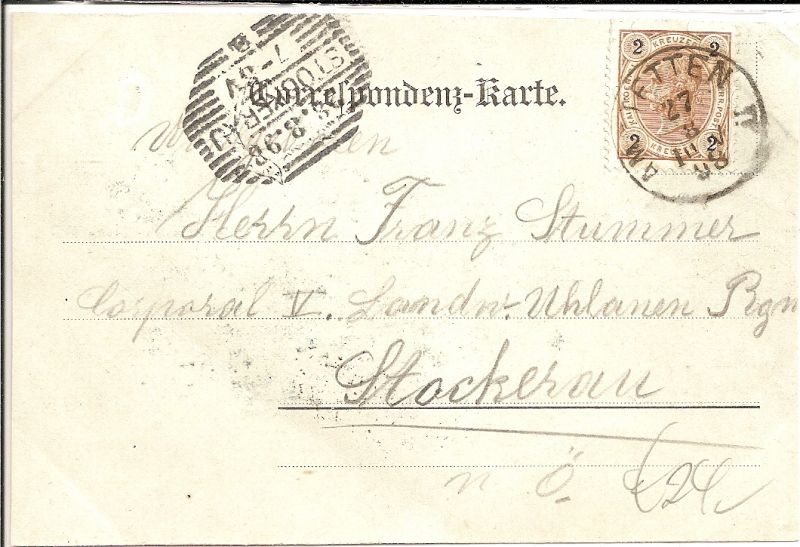 Correspondenz-Karte.
Herrn Franz Stummer
Corporal V. Landw. Uhlanen Rgn
Stockerau
n Ö.
2 KREUZER 2
2 KREUZER 2
STOCKERAU
28.8.98
7-8V
AMSTETTEN
27
8
98